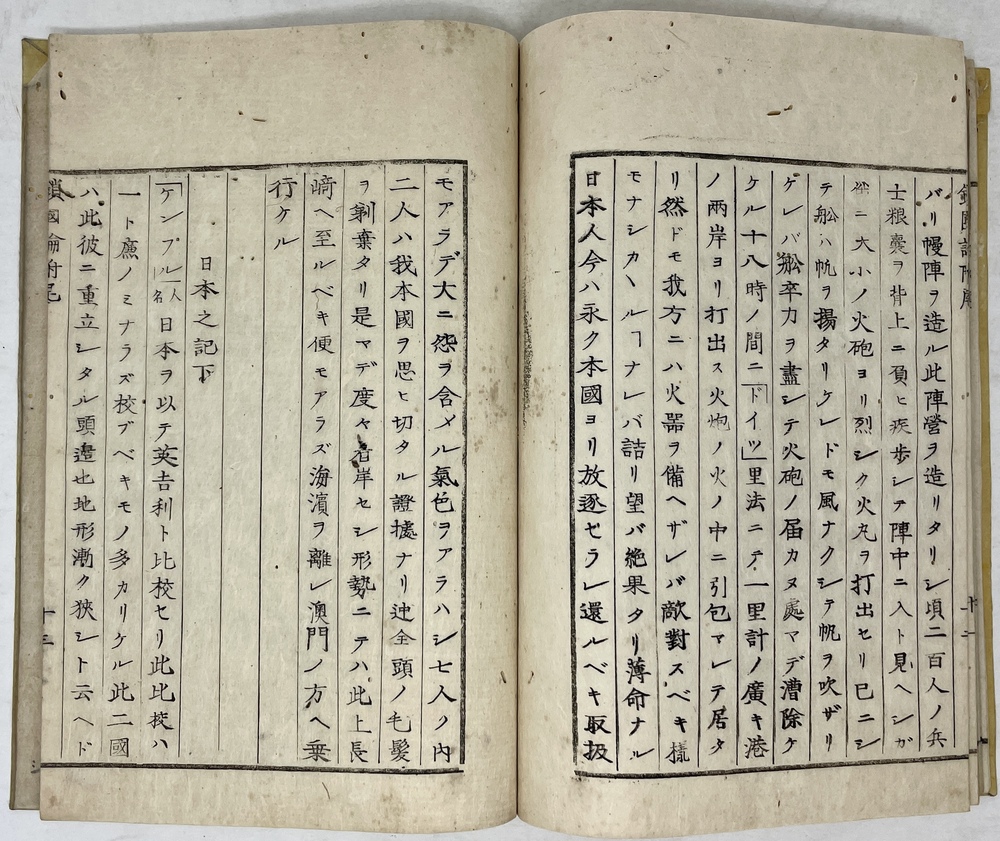 バリ幔陣ヲ造ル此陣營ヲ造リタリシ頃二百人ノ兵
士粮嚢ヲ背上ニ負ヒ疾歩シテ陣中ニ入ト見ヘシガ
ニ大小ノ火砲ヨリ烈シク火丸ヲ打出セリ已ニシ
テ舩ハ帆ヲ揚タリケレドモ風ナクシテ帆ヲ吹ザリ
ケレバ舩卒力ヲ盡シテ火砲ノ届カヌ處マデ漕除ケ
ケル十八時ノ間ニ「ドイツ」里法ニテ一里計ノ廣キ港
ノ兩岸ヨリ打出ス火炮ノ火ノ中ニ引包マレテ居タ
リ然ドモ我方ニハ火器ヲ備ヘザレバ敵對スベキ樣
モナシカヽルヿナレバ詰リ望バ絶果タリ薄命ナル
日本人今ハ永ク本國ヨリ放逐セラレ還ルベキ取扱
十二
モアラデ大ニ怨ヲ含メル氣色ヲアラハシ七人ノ内
二人ハ我本國ヲ思ヒ切タル證據ナリ迚全頭ノ毛髪
ヲ剃棄タリ是マデ度々着岸セシ形勢ニテハ此上長
﨑ヘ至ルベキ便モアラズ海濱ヲ離レ澳門ノ方ヘ乗
行ケル
日本之記下
ケンプル人名日本ヲ以テ英吉利ト比校セリ此比校ハ
一ト應ノミナラズ校ブベキモノ多カリケル此二國
ハ此彼ニ重立シタル頭邉也地形漸ク狹シト云ヘド
鎖國論附尾
十三